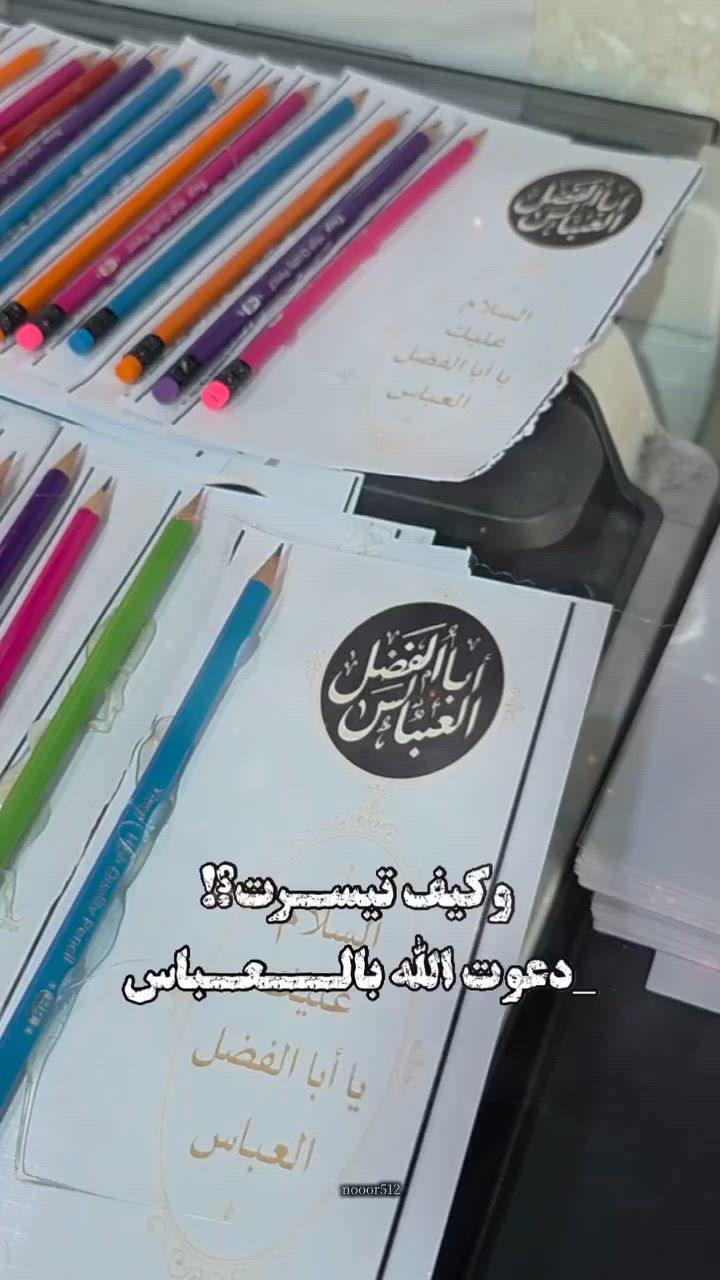 أبا الفضل
العباس
السلام
عليك
يا أبا الفضل
العباس
أبا الفضل
العباس
وكيف تيسرت؟!
_دعوت الله بالعباس
السلام
عليك
يا أبا الفضل
العباس
Quality Pencil
nooor512